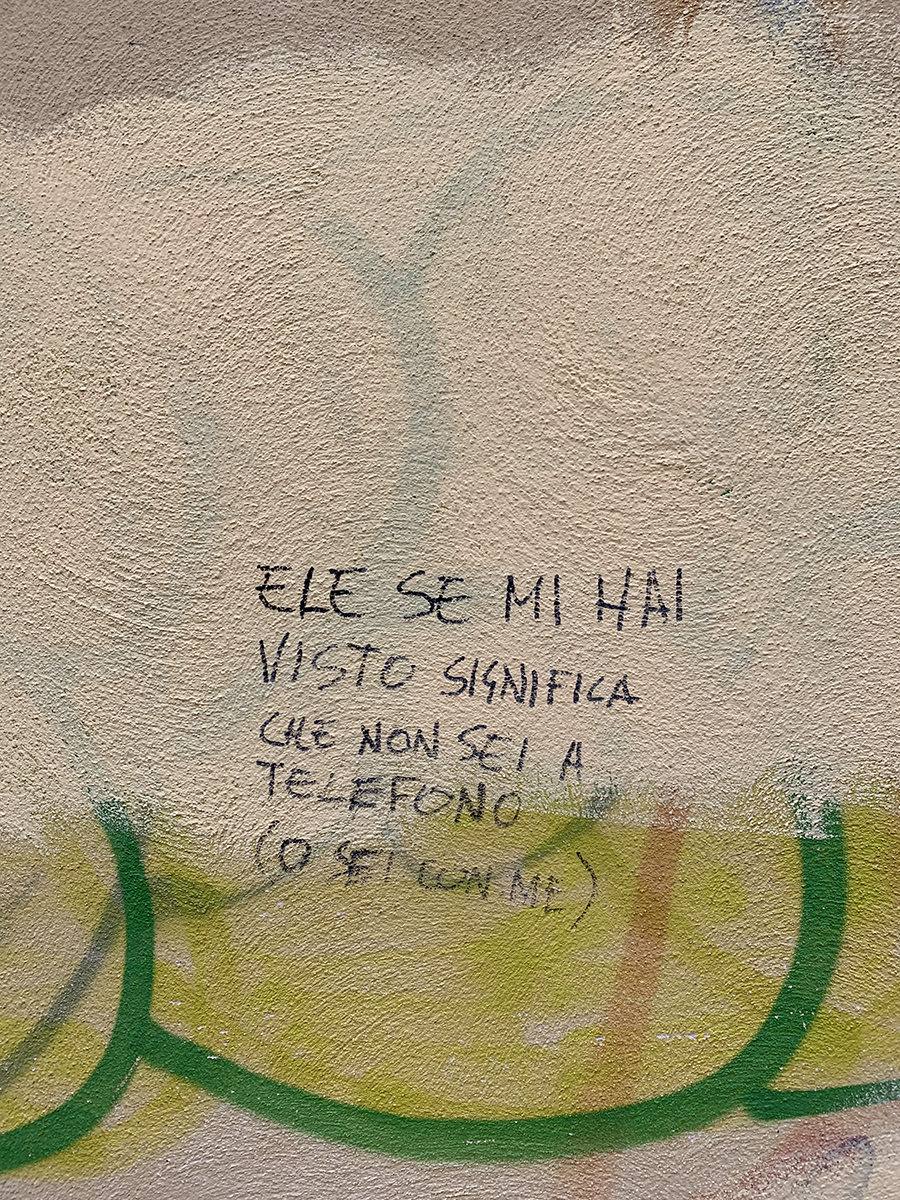 ELE SE MI HAI
VISTO SIGNIFICA
CHE NON SEI A
TELEFONO
(O SEI CON ME)